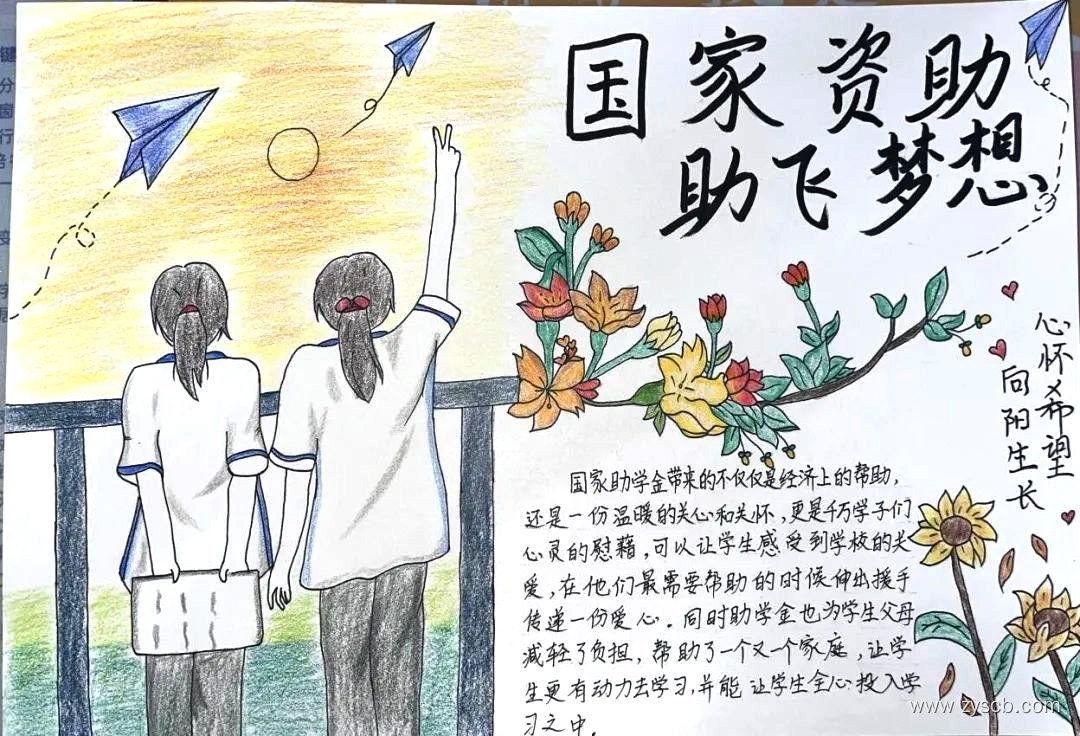 国家资助
助飞梦想
心怀希望
向阳生长
国家助学金带来的不仅仅是经济上的帮助,
还是一份温暖的关心和关怀,更是千万学子们
心灵的慰藉,可以让学生感受到学校的关
爱,在他们最需要帮助的时候伸出援手
传递一份爱心。同时助学金也为学生父母
减轻了负担,帮助了一个又一个家庭,让学
生更有动力去学习,并能让学生全心投入学
习之中。
www.zyscb.com